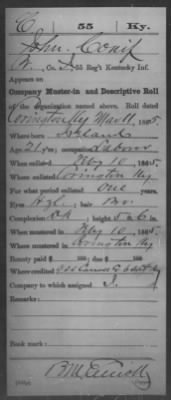 C | 55 | Ky.
John Conif
P., Co. I, 55 Reg't Kentucky Inf.
Appears on
Company Muster-in and Descriptive Roll
of the organization named above. Roll dated
Covington Ky Mar 11, 1865.
Where born Ireland
Age 21 y'rs; occupation Labour
When enlisted Feby 10, 1865.
Where enlisted Covington Ky
For what period enlisted One years.
Eyes Hzl; hair Br.
Complexion Dk; height 5 ft. 6 in.
When mustered in Feby 10, 1865.
Where mustered in Covington Ky
Bounty paid $ 100; due $ 100
Where credited
Company to which assigned I.
Remarks:
Book mark: